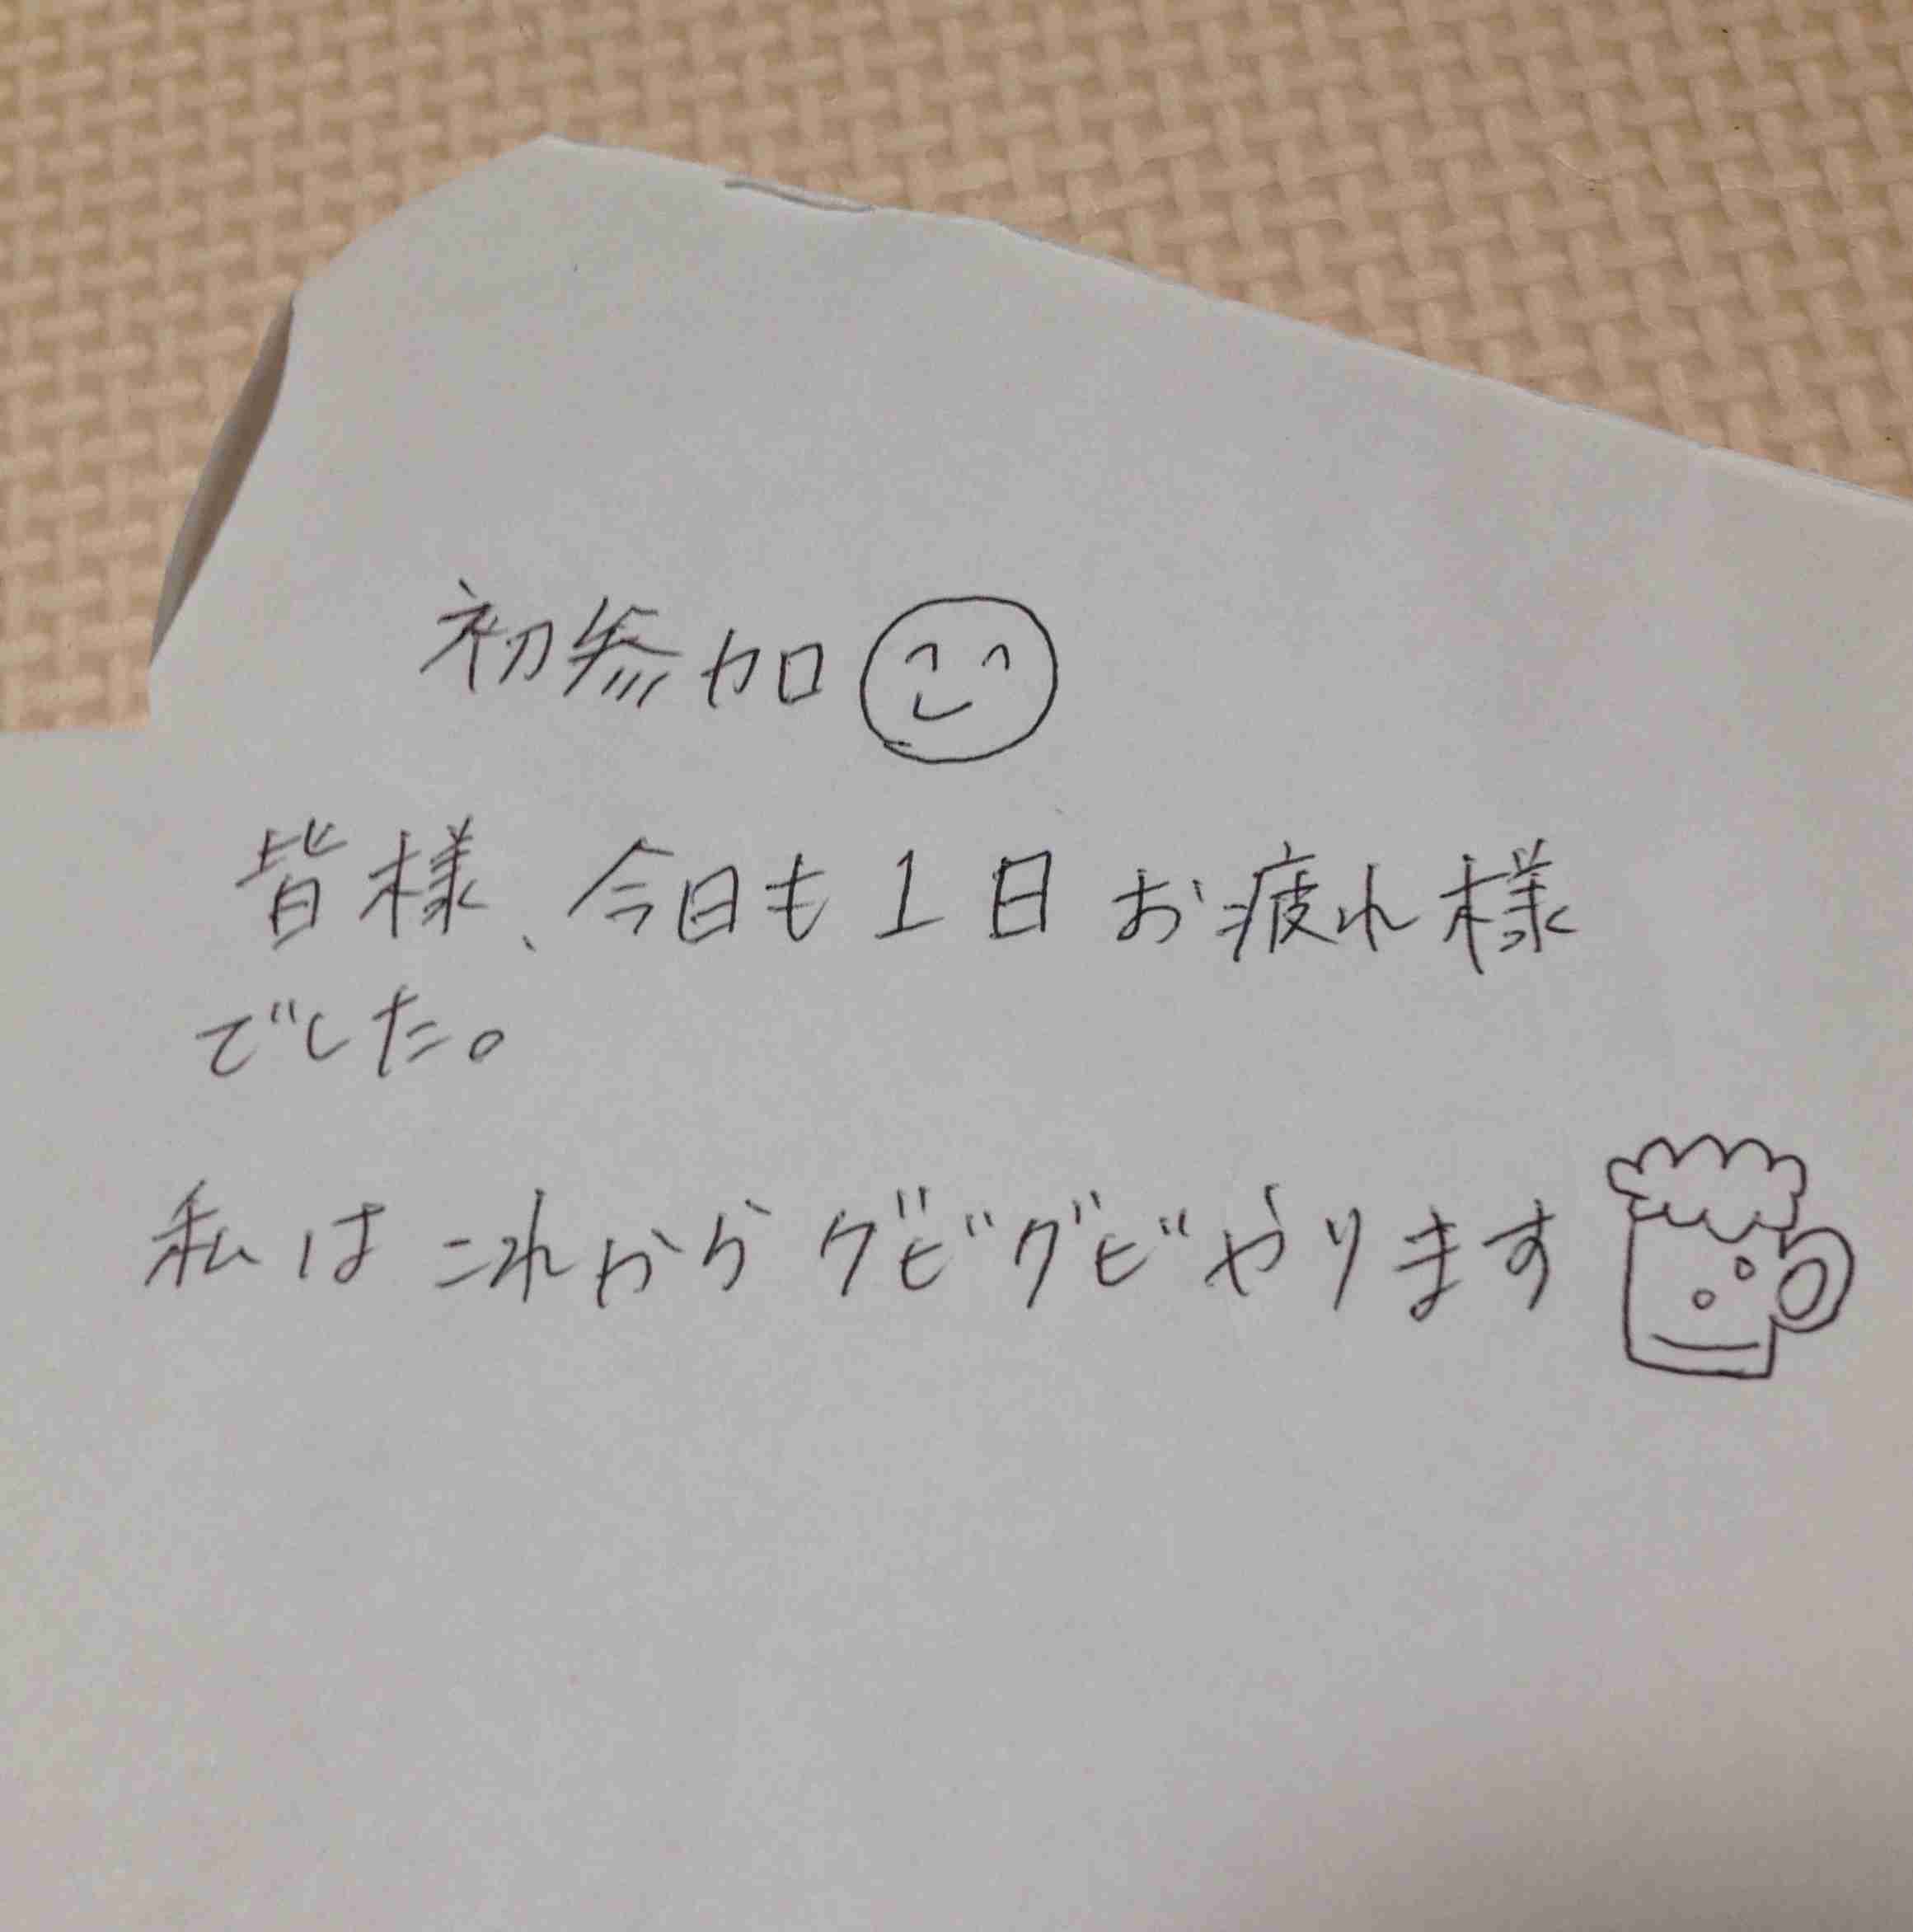 初参加
皆様、今日も1日お疲れ様
でした。
私はこれからグビグビやります